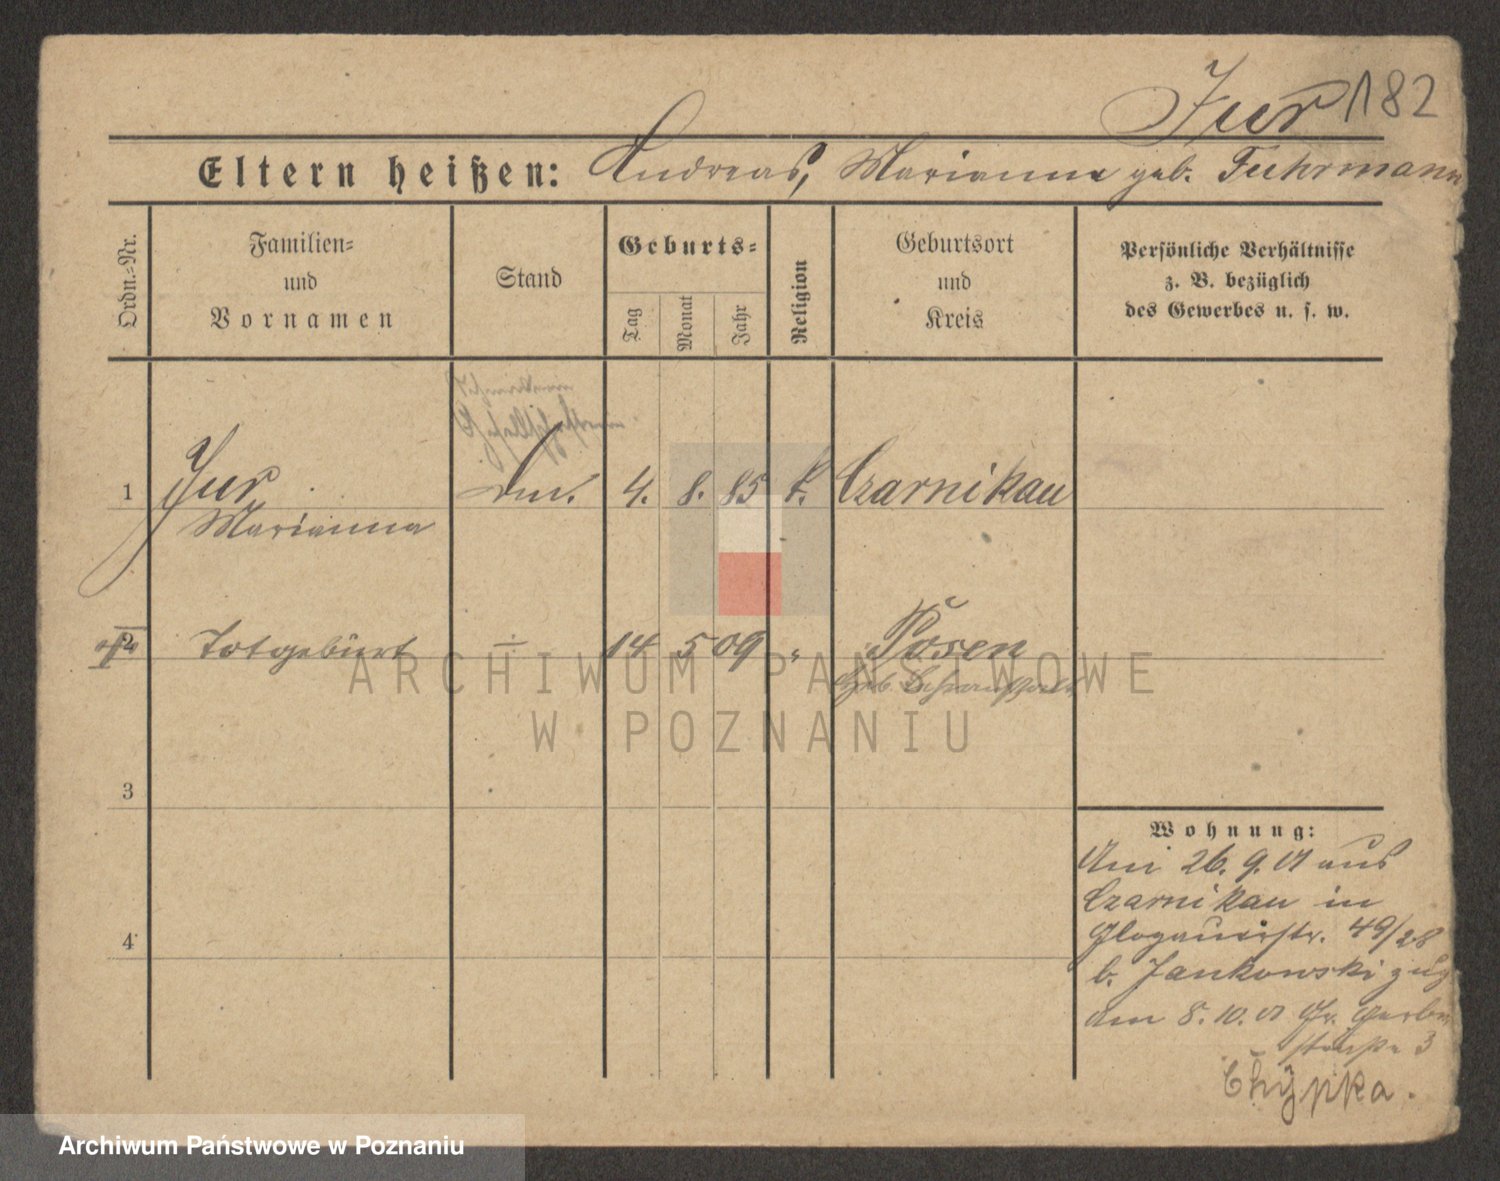 Jur 182
Eltern heißen: Andreas, Marianne geb. Fuhrmann
Ordn.-Nr.
Familien-
und
Vornamen
Stand
Geburts-
Tag
Monat
Jahr
Religion
Geburtsort
und
Kreis
Persönliche Verhältnisse
z. B. bezüglich
des Gewerbes u. s. w.
1 Jur 4. 8. 85 k. Czarnikau
Marianna
2 Totgeburt ÷ 14 5 09 " Posen
3
4
Wohnung:
Am 26. 9. 01 aus
Czarnikau in
Glogauerstr. 49/28
b. Jankowski zug
am 8. 10. 01 Gr. Gerber
straße 3
Chypka.
ARCHIWUM PAŃSTWOWE
W POZNANIU
Archiwum Państwowe w Poznaniu